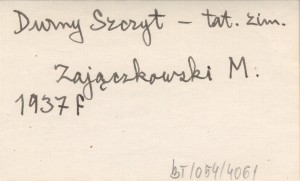 Durny Szczyt – tat. zim.
Zajączkowski M.
1937 f
BT/054/4061